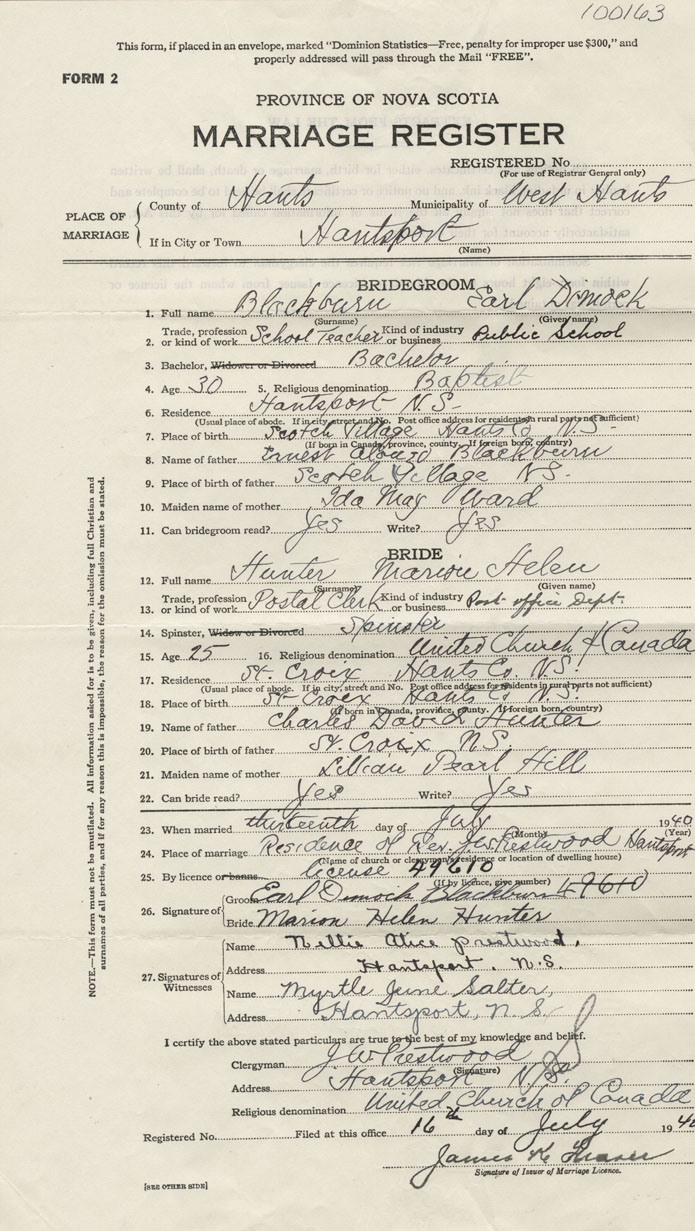 100163
This form, if placed in an envelope, marked "Dominion Statistics—Free, penalty for improper use $300," and
properly addressed will pass through the Mail "FREE".
FORM 2
PROVINCE OF NOVA SCOTIA
MARRIAGE REGISTER
REGISTERED No.
(For use of Registrar General only)
PLACE OF MARRIAGE
County of Hants Municipality of West Hants
If in City or Town Hantsport
(Name)
BRIDEGROOM
1. Full name Blackburn Earl Dimock
(Surname) (Given name)
2. Trade, profession or kind of work School Teacher Kind of industry or business Public School
3. Bachelor, Widower or Divorced Bachelor
4. Age 30 5. Religious denomination Baptist
6. Residence Hantsport N.S.
(Usual place of abode. If in city, street and No. Post office address for residents in rural parts not sufficient)
7. Place of birth Scotch Village Hants Co N.S.
(If born in Canada, province, county. If foreign born, country)
8. Name of father Ernest Alonzo Blackburn
9. Place of birth of father Scotch Village N.S.
10. Maiden name of mother Ida May Ward
11. Can bridegroom read? Yes Write? Yes
BRIDE
12. Full name Hunter Marion Helen
(Surname) (Given name)
13. Trade, profession or kind of work Postal Clerk Kind of industry or business Post office Dept.
14. Spinster, Widow or Divorced Spinster
15. Age 25 16. Religious denomination United Church of Canada
17. Residence St. Croix Hants Co. N.S.
(Usual place of abode. If in city, street and No. Post office address for residents in rural parts not sufficient)
18. Place of birth St-Croix Hants Co. N.S.
(If born in Canada, province, county. If foreign born, country)
19. Name of father Charles David Hunter
20. Place of birth of father St. Croix N.S.
21. Maiden name of mother Lillian Pearl Hill
22. Can bride read? Yes Write? Yes
23. When married thirteenth day of July 1940
(Month) (Year)
24. Place of marriage Residence of Rev. J.W. Prestwood Hantsport
(Name of church or clergyman's residence or location of dwelling house)
25. By licence or banns license 49610
(If by licence, give number)
26. Signature of
Groom Earl Dimock Blackburn 49610
Bride Marion Helen Hunter
27. Signatures of Witnesses
Name Nellie Alice Prestwood,
Address Hantsport, N.S.
Name Myrtle June Salter,
Address Hantsport, N.S.
I certify the above stated particulars are true to the best of my knowledge and belief.
Clergyman J.W. Prestwood
(Signature)
Address Hantsport N.S.
Religious denomination United Church of Canada
Registered No. Filed at this office 16th day of July 194
James K
Signature of Issuer of Marriage Licence.
[SEE OTHER SIDE]
NOTE.—This form must not be mutilated. All information asked for is to be given, including full Christian and
surnames of all parties, and if for any reason this is impossible, the reason for the omission must be stated.